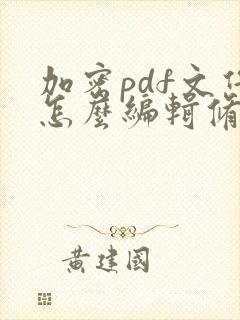 加密pdf文件
怎麼編輯
黃建國